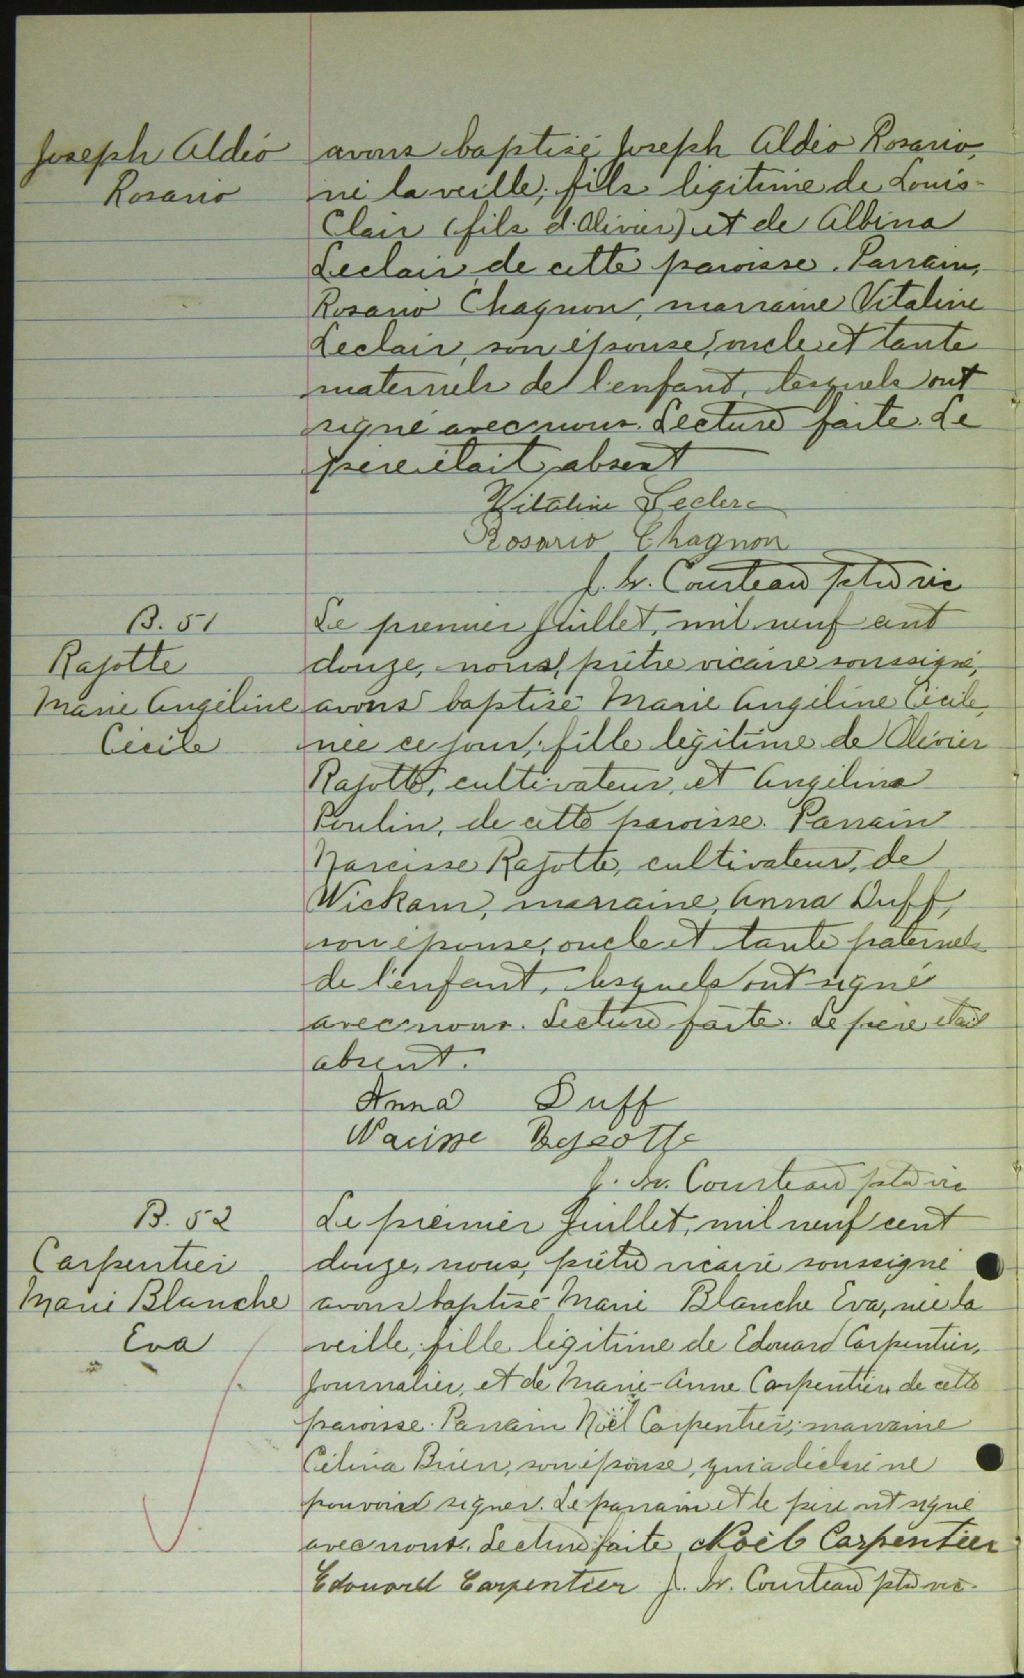 Joseph Aldéo
Rosario
avons baptisé Joseph Aldéo Rosario,
né la veille, fils légitime de Louis-
Clair (fils d'Olivier) et de Albina
Leclair, de cette paroisse. Parrain,
Rosario Chagnon, marraine Vitaline
Leclair, son épouse, oncle et tante
maternels de l'enfant, lesquels ont
signé avec nous. Lecture faite. Le
père était absent
Vitaline Leclerc
Rosario Chagnon
J. Courteau ptre vic
B. 51
Rajotte
Marie Angéline
Cécile
Le premier Juillet, mil neuf cent
douze, nous, prêtre vicaire soussigné,
avons baptisé Marie Angéline Cécile,
née ce jour, fille légitime de Olivier
Rajotte, cultivateur, et Angélina
Poulin, de cette paroisse. Parrain
Narcisse Rajotte, cultivateur, de
Wickam, marraine, Anna Duff,
son épouse, oncle et tante paternels
de l'enfant, lesquels ont signé
avec nous. Lecture faite. Le père était
absent.
Anna Duff
Narcisse
J. Courteau ptre vic
B. 52
Carpentier
Marie Blanche
Eva
Le premier Juillet, mil neuf cent
douze, nous, prêtre vicaire soussigné
avons baptisé Marie Blanche Eva, née la
veille, fille légitime de Edouard Carpentier,
Journalier, et de Marie-Anne Carpentier, de cette
paroisse. Parrain Noël Carpentier; marraine
Célina Brien, son épouse, qui a déclaré ne
pouvoir signer. Le parrain et le père ont signé
avec nous. Lecture faite Noël Carpentier
Edouard Carpentier J. Courteau ptre vic.